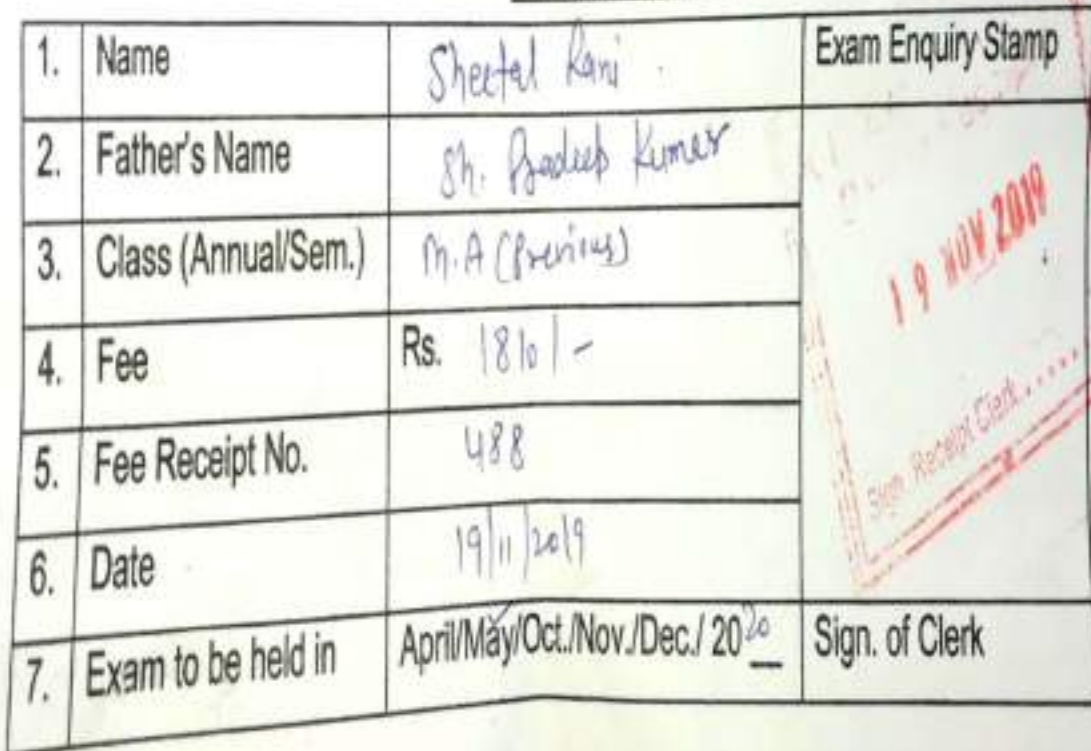 1. Name Sheetal Rani Exam Enquiry Stamp
2. Father's Name Sh. Pradeep Kumar
19 NOV 2019
3. Class (Annual/Sem.) M.A (Previous)
4. Fee Rs. 1810/-
Sign. Receipt Clerk.....
5. Fee Receipt No. 488
6. Date 19/11/2019
7. Exam to be held in April/May/Oct./Nov./Dec./ 2020 Sign. of Clerk